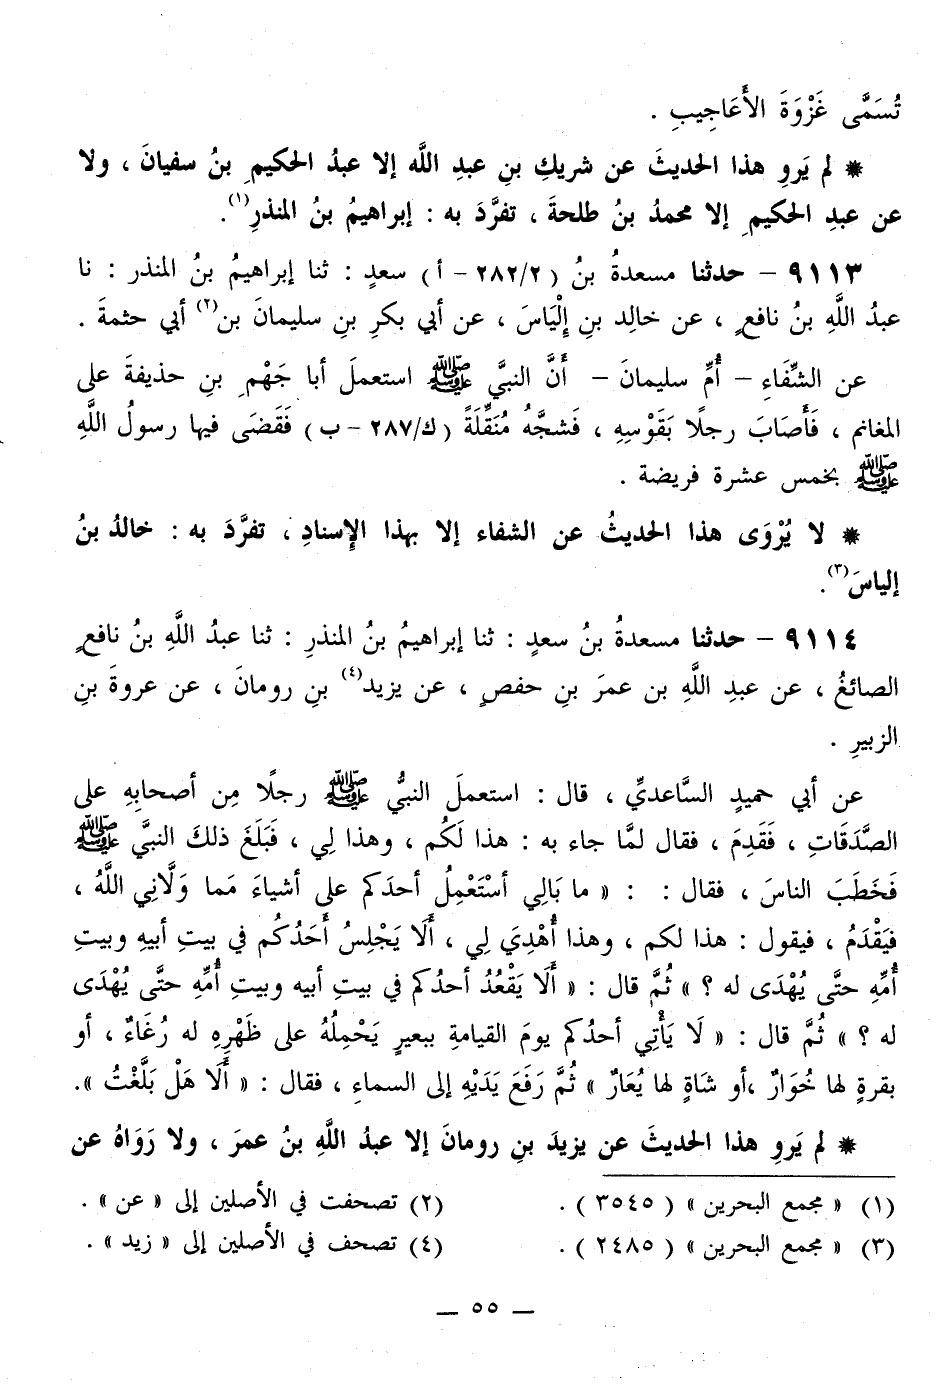 تُسَمَّى غَزْوَةَ الأَعَاجِيبِ .
* لم يَروِ هذا الحديثَ عن شريكِ بنِ عبدِ اللَّه إلا عبدُ الحكيمِ بنُ سفيانَ ، ولا
عن عبدِ الحكيمِ إلا محمدُ بنُ طلحةَ ، تفرَّدَ به : إبراهيمُ بنُ المنذرِ(١).
٩١١٣ – حدثنا مسعدةُ بنُ (٢٨٢/٢ – أ) سعدٍ : ثنا إبراهيمُ بنُ المنذر : نا
عبدُ اللَّهِ بنُ نافعٍ ، عن خالِد بنِ إِلْيَاسَ ، عن أبي بكرِ بنِ سليمانَ بن(٢) أبي حثمةَ .
عن الشِّفَاءِ – أُمِّ سليمانَ – أَنَّ النبيَّ ﷺ استعملَ أبا جَهْمِ بنِ حذيفةَ على
المغانم ، فَأَصَابَ رجلًا بَقَوْسِهِ ، فَشجَّهُ مُنَقِّلَةً (ك/٢٨٧ – ب) فَقَضَى فيها رسولُ اللَّهِ
ﷺ بخمس عشرة فريضة .
* لا يُرْوَى هذا الحديثُ عن الشفاء إلا بهذا الإسنادِ ، تفرَّدَ به : خالدُ بنُ
إلياسَ(٣).
٩١١٤ – حدثنا مسعدةُ بنُ سعدٍ : ثنا إبراهيمُ بنُ المنذرِ : ثنا عبدُ اللَّهِ بنُ نافعٍ
الصائغُ ، عن عبدِ اللَّهِ بن عمرَ بنِ حفصٍ ، عن يزيد(٤) بنِ رومانَ ، عن عروةَ بنِ
الزبيرِ .
عن أبي حميدٍ السَّاعديِّ ، قال : استعملَ النبيُّ ﷺ رجلًا مِن أصحابِهِ على
الصَّدَقَاتِ ، فَقَدِمَ ، فقال لمَّا جاء به : هذا لَكُم ، وهذا لِي ، فَبَلَغَ ذلكَ النبيَّ ﷺ
فَخَطَبَ الناسَ ، فقال : : « ما بَالِي أسْتَعْمِلُ أحدَكم على أشياءَ مَما وَلَّانِي اللَّهُ ،
فيَقْدَمُ ، فيقول : هذا لكم ، وهذا أُهْدِيَ لِي ، أَلَا يَجْلِسُ أَحَدُكُم في بيتِ أبيهِ وبيتِ
أُمِّهِ حتَّى يُهْدَى له ؟ » ثُمَّ قال : « أَلَا يَقْعُدُ أحدُكم في بيتِ أبيه وبيتِ أُمِّهِ حتَّى يُهْدَى
له ؟ » ثُمَّ قال : « لَا يَأْتِي أحدُكم يومَ القيامةِ ببعيرٍ يَحْمِلُهُ على ظَهْرِهِ له رُغَاءٌ ، أو
بقرةٍ لها خُوَارٌ ،أو شَاةٍ لها يُعَارٌ » ثُمَّ رَفَعَ يَدَيْهِ إلى السماءِ ، فقال : « أَلَا هَلْ بَلَّغْتُ ».
* لم يَروِ هذا الحديثَ عن يزيدَ بنِ رومانَ إلا عبدُ اللَّهِ بنُ عمرَ ، ولا رَوَاهُ عن
(١) « مجمع البحرين » ( ٣٥٤٥ ) . (٢) تصحفت في الأصلين إلى « عن » .
(٣) « مجمع البحرين » ( ٢٤٨٥ ) . (٤) تصحف في الأصلين إلى « زيد » .
— ٥٥ —